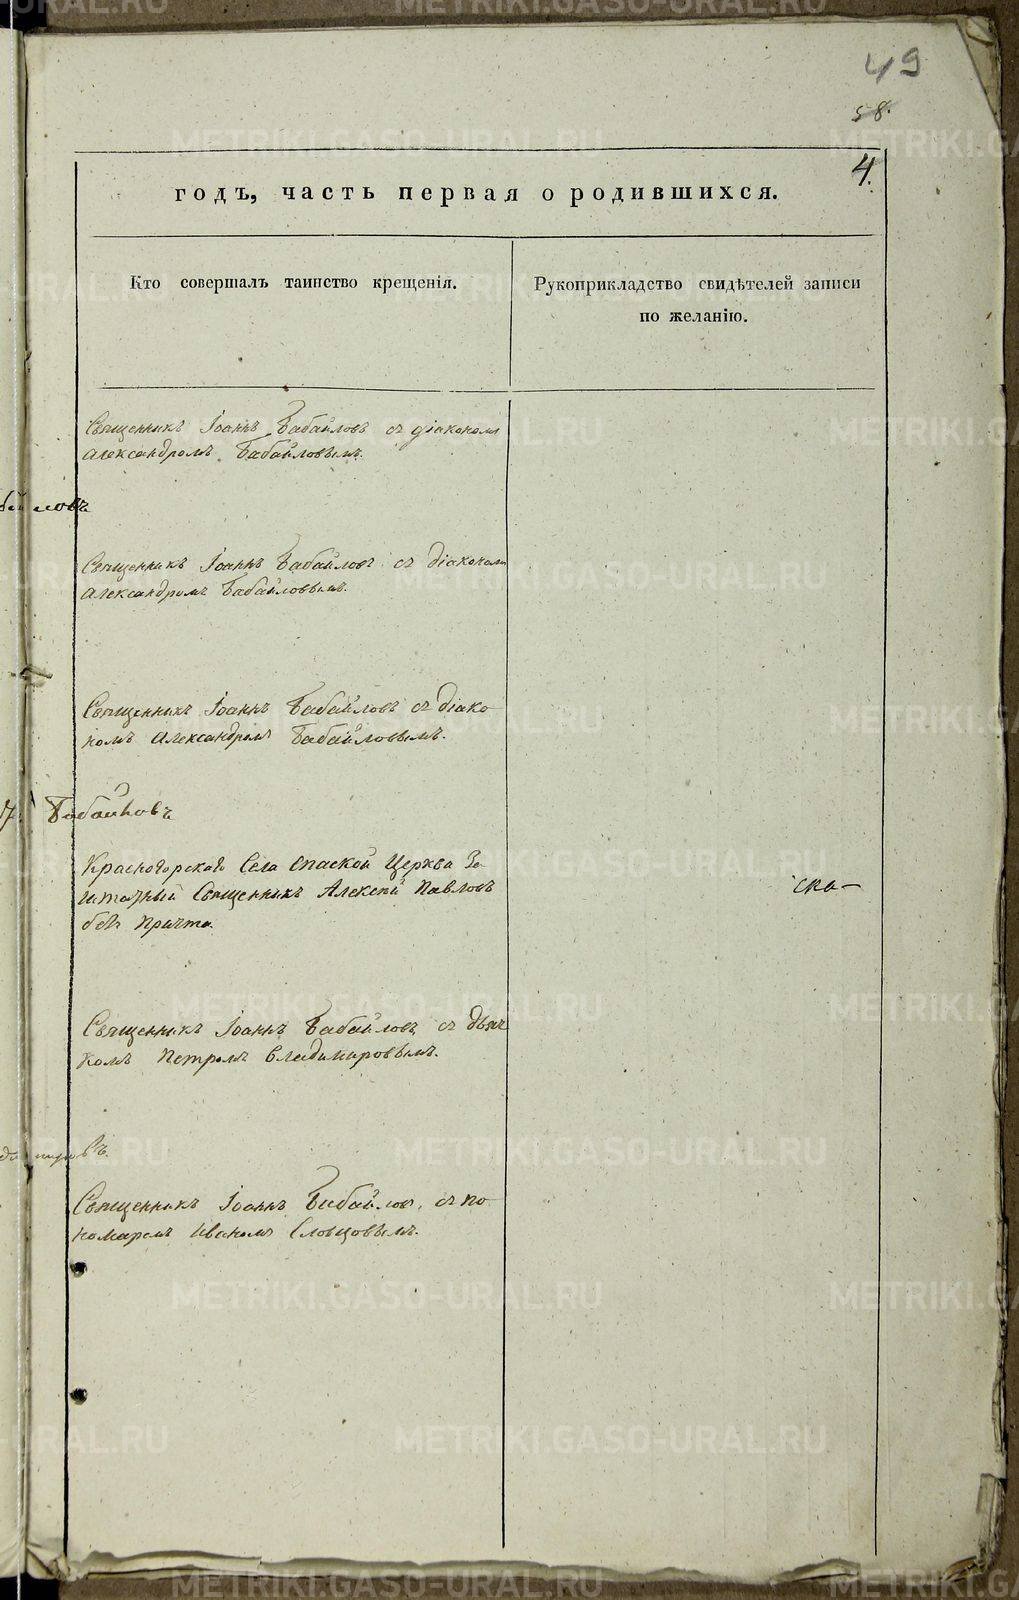 49
58.
4.
годъ, часть первая о родившихся.
Кто совершалъ таинство крещенія.
Рукоприкладство свидѣтелей записи
по желанію.
Священникъ Іоаннъ Бабайловъ съ діакономъ
Александромъ Бабайловымъ.
ловъ
Священникъ Іоаннъ Бабайловъ съ діакономъ
Александромъ Бабайловымъ.
Священникъ Іоаннъ Бабайловъ съ діако-
номъ Александромъ Бабайловымъ.
Красногорскаго Села Спаской Церкви За-
штатный Священникъ Алексѣй Павловъ
безъ Причта.
ска-
Священникъ Іоаннъ Бабайловъ съ дьяч
комъ Петромъ Владимировымъ.
Священникъ Іоаннъ Бабайловъ съ по-
номаремъ Иваномъ Словцовымъ.
METRIKI.GASO-URAL.RU